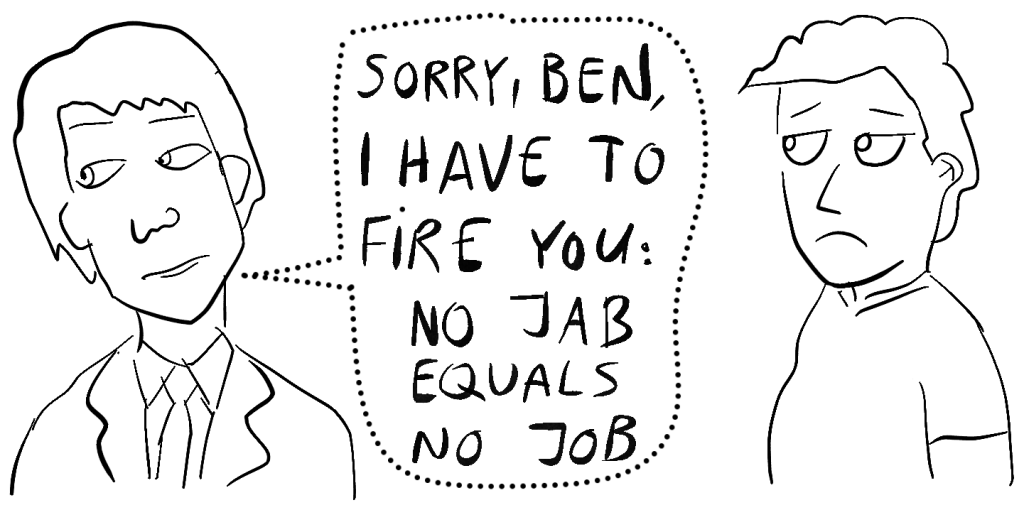 SORRY, BEN,
I HAVE TO
FIRE YOU:
NO JAB
EQUALS
NO JOB